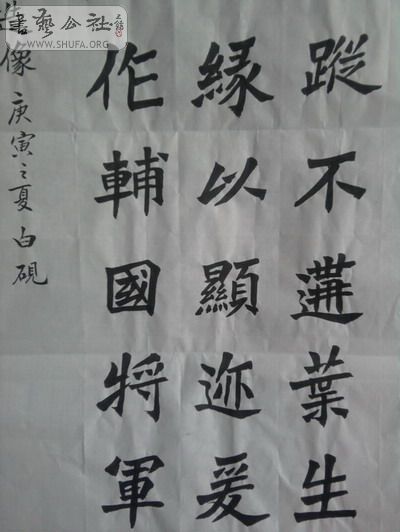 蹤不遘葉生
緣以顯迹爰
作輔國將軍
像 庚寅之夏 白硯
書藝公社
WWW.SHUFA.ORG